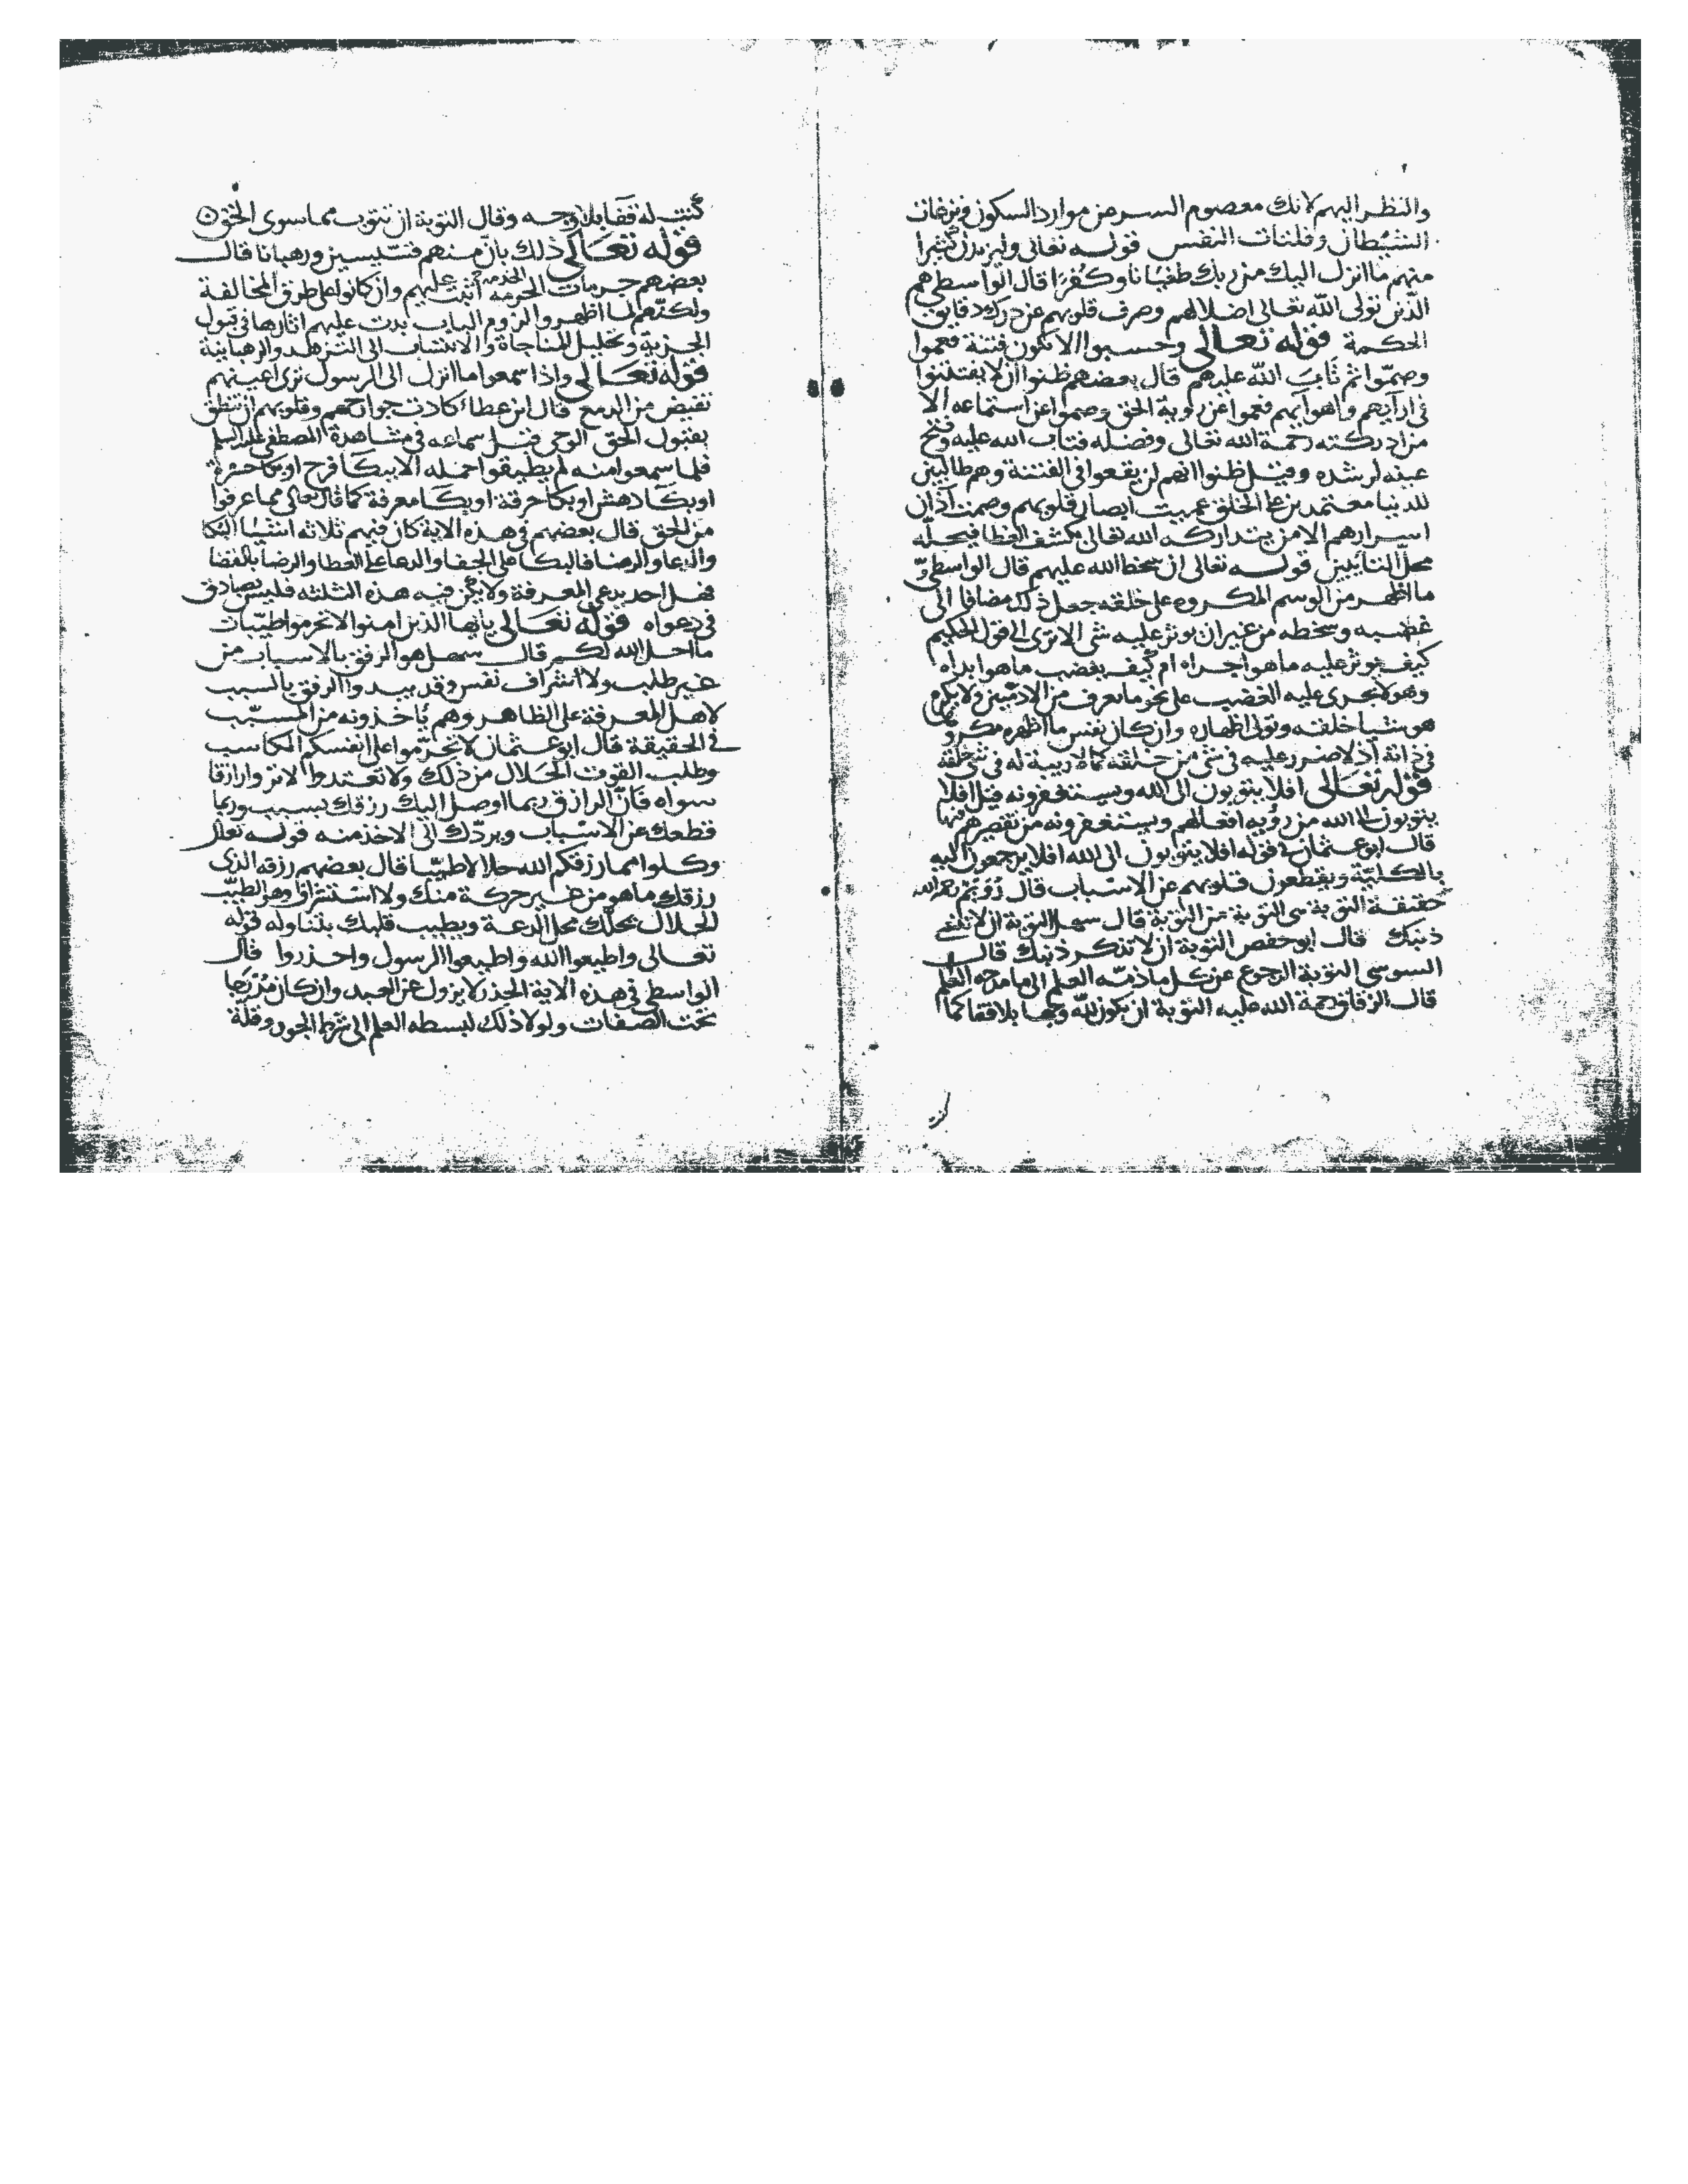 والنظر اليهم لانك معصوم السر عن موارد السكون ونزغات
الشيطان وفلتات النفس قوله تعالى وليزيدن كثيرا
منهم ما انزل اليك من ربك طغيانا وكفرا قال الواسطى هم
الذين تولى الله تعالى اضلالهم وصرف قلوبهم عن درك دقايق
الحكمة قوله تعالى وحسبوا الا تكون فتنة فعموا
وصموا ثم تاب الله عليهم قال بعضهم ظنوا ان لا يفتتنوا
فى ارآيهم واهوآيهم فعموا عن روية الحق وصموا عن استماعه الا
من ادركته رحمة الله تعالى وفضله فتاب الله عليه وفتح
عينه لرشده وقيل ظنوا انهم لن يقعوا فى الفتنة وهم طالبين
للدنيا معتمدين على الخلق عميت ابصار قلوبهم وصمت اذان
اسرارهم الا من يتداركه الله تعالى بكشف الغطا فيحله
محل التائبين قوله تعالى ان سخط الله عليهم قال الواسطى
ما اظهر من الوسم المكروه على خلقه جعل ذلك مضافا الى
غضبه وسخطه من غير ان يوثر عليه شى الا ترى الى قول الحكيم
كيف يوثر عليه ما هو اجراه ام كيف يغضب ما هو ابداه
وهو لا يجرى عليه الغضب على نحو ما نعرف من الادميين ولا يكره
هو شيا خلقه وتولى اظهاره وان كان نفس ما اظهره مكروها
فى ذاته اذ لا ضرر عليه فى شى من خلقه كما لا زينة له فى شى خلقه
قوله تعالى افلا يتوبون الى الله ويستغفرونه قيل افلا
يتوبون الى الله من روية افعالهم ويستغفرونه من تقصيرهم فيها
قال ابو عثمان فى قوله افلا يتوبون الى الله افلا يرجعون اليه
بالكلية ويقطعون قلوبهم عن الاسباب قال رويم رحمه الله
حقيقة التوبة هى التوبة من التوبة قال سهل التوبة ان لا تنسى
ذنبك قال ابو حفص التوبة ان لا تذكر ذنبك قال
السوسى التوبة الرجوع عن كل ما ذمه العلم الى ما مدحه العلم
قال الزقاق رحمة الله عليه التوبة ان تكون لله وجها بلا قفا كما
كنت له قفا بلا وجه وقال التوبة ان تتوب مما سوى الحق
قوله تعالى ذلك بان منهم قسيسين ورهبانا قال
بعضهم حرمات الخدمة اثبت عليهم وان كانوا على طرق المخالفة
ولكنهم لما اظهروا لزوم الباب بدت عليهم اثارها فى قبول
الجزية وتحليل المناجاة والانتساب الى التزهد والرهبانية
قوله تعالى واذا سمعوا ما انزل الى الرسول ترى اعينهم
تفيض من الدمع قال ابن عطا كادت جوارحهم وقلوبهم ان تنطق
بقبول الحق الوحى قبل سماعه فى مشاهدة المصطفى عليه السلم
فلما سمعوا منه لم يطيقوا حمله الا ببكا فرح او بكا حسرة
او بكا دهش او بكا حرقة او بكا معرفة كما قال تعالى مما عرفوا
من الحق قال بعضهم فى هذه الاية كان فيهم ثلاثه اشيا البكا
والدعا والرضا فالبكا على الجفا والدعا على العطا والرضا بالقضا
فهل احد يدعى المعرفة ولا يكن فيه هذه الثلثه فليس بصادق
فى دعواه قوله تعالى يايها الذين امنوا لا تحرموا طيبات
ما احل الله لكم قال سهل هو الرفق بالاسباب من
غير طلب ولا اشراف نفس وقد يبدوا الرفق بالسبب
لاهل المعرفة على الظاهر وهم ياخذونه من المسبب
فى الحقيقة قال ابو عثمان لا تحرموا على انفسكم المكاسب
وطلب القوت الحلال من ذلك ولا تعتدوا لا تروا رازقا
سواه فان الرازق ربما اوصل اليك رزقك بسبب وربما
قطعك عن الاسباب ويردك الى الاخذ منه قوله تعالى
وكلوا مما رزقكم الله حلالا طيبا قال بعضهم رزقه الذى
رزقك ما هو من غير حركة منك ولا استشراف وهو الطيب
الحلال يحلك محل الدعة ويطيب قلبك بتناوله قوله
تعالى واطيعوا الله واطيعوا الرسول واحذروا قال
الواسطى فى هذه الاية الحذر لا يزول عن العبد وان كان مدرجا
تحت الصفات ولولا ذلك لبسطه العلم الى شرط الجور وقلة